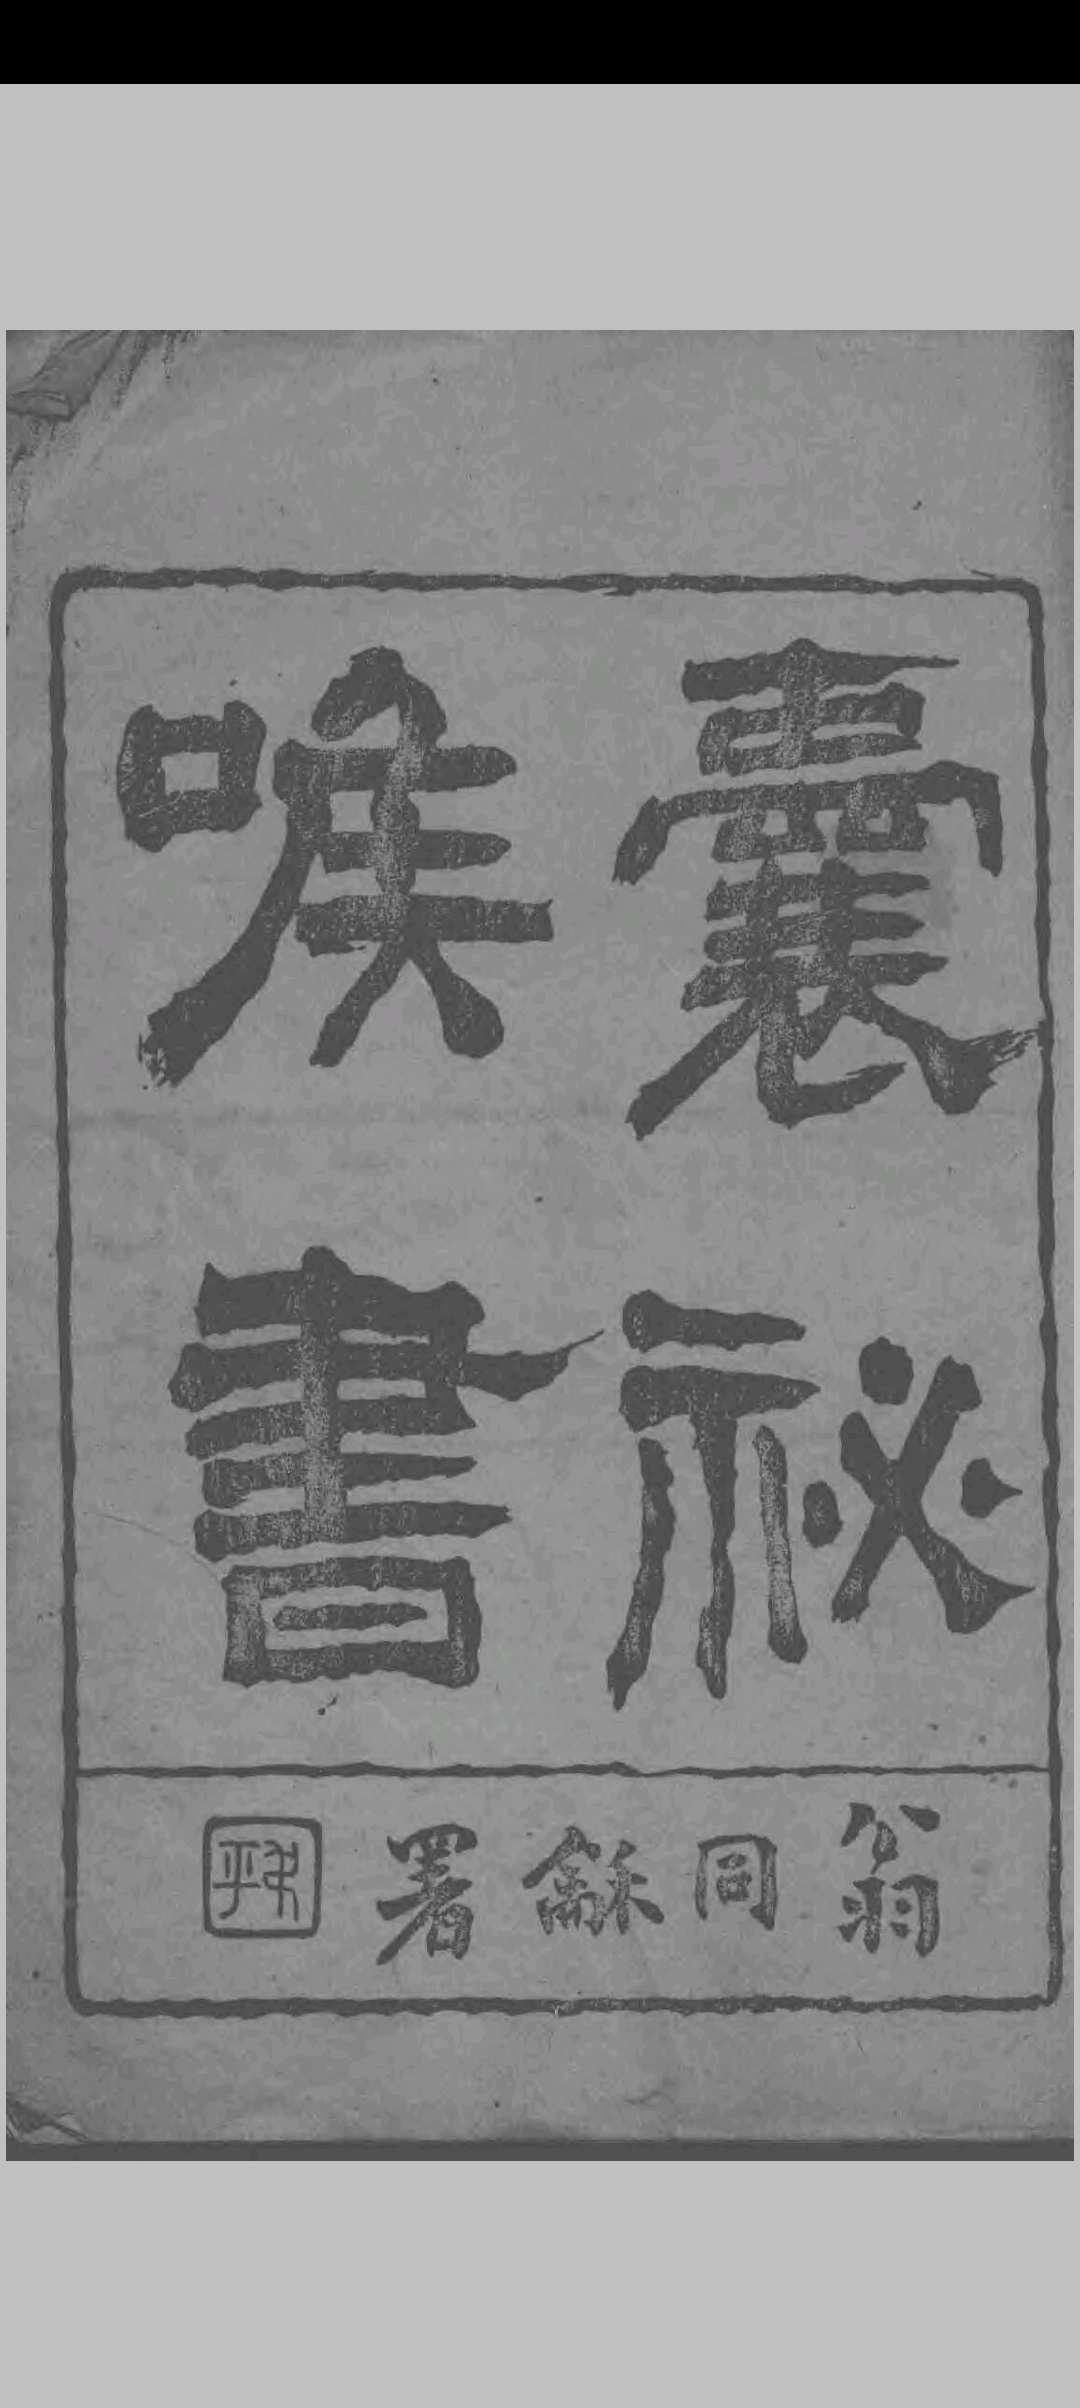 囊祕
喉書
翁同龢署
叔平